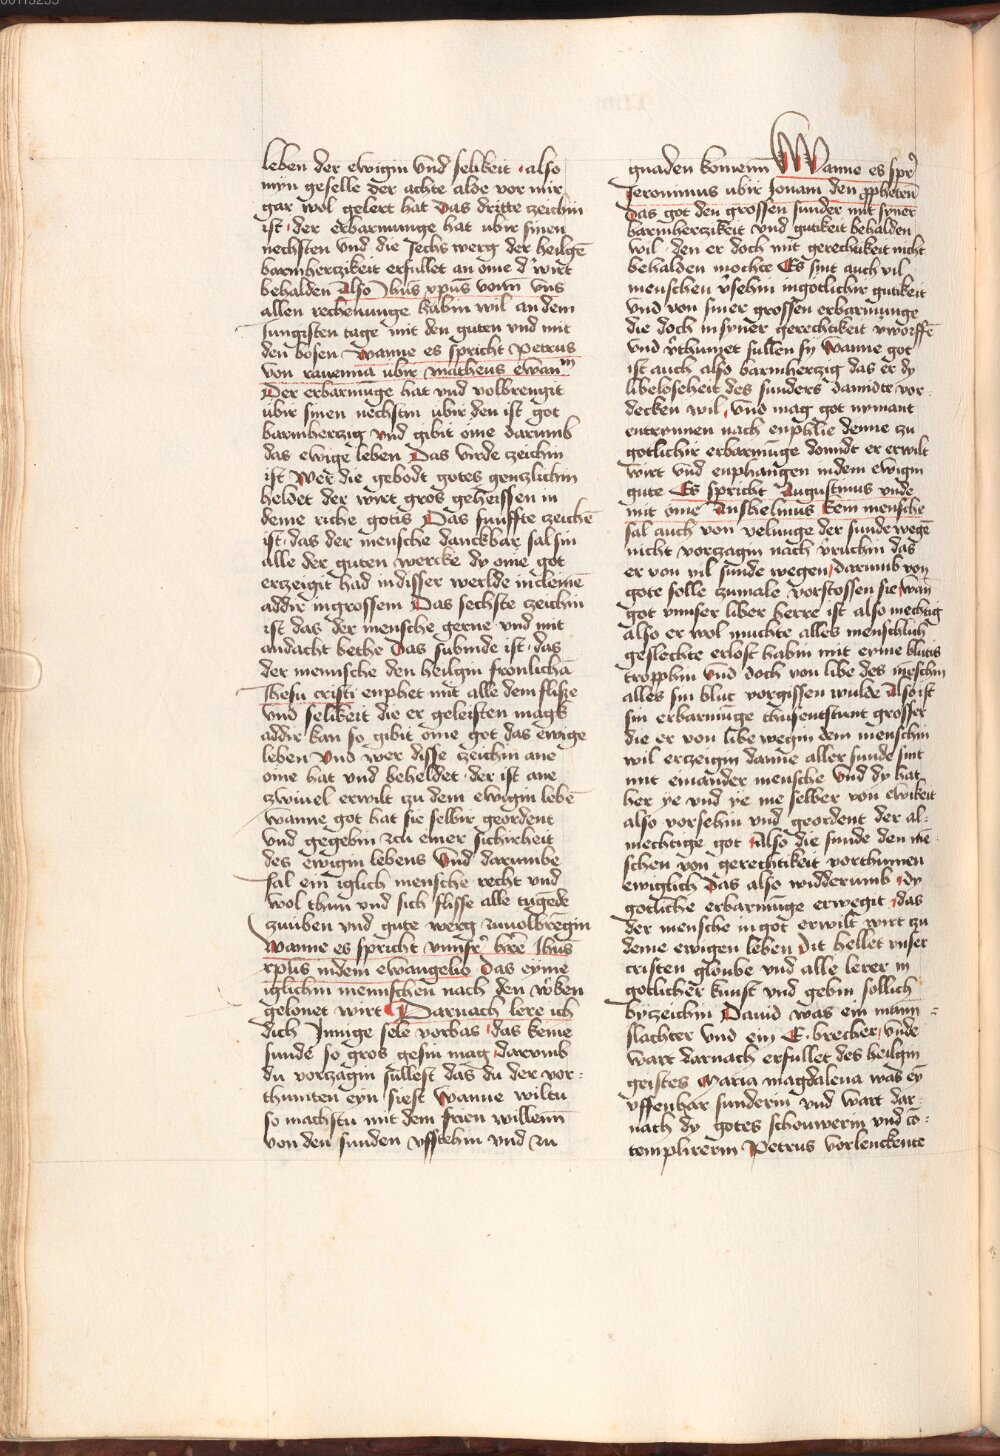 leben der ewigin vnd selikeit also
myn geselle der achte alde vor mir
gar wol gelert hat Das dritte zceichin
ist der erbarmunge hat ubir sinen
nechsten vnd die sechs werg der heilgē
barmherczikeit erfullet an ome d' wirt
behalden Also Ihūs xp̄us vonn vns
allen rechenunge habin wil an dem
Iungisten tage mit den guten vnd mit
den bosen wanne es spricht Petrus
von rauenna ubir Matheus ewanm
Der erbarmūge hat vnd volbrengit
ubir sinen nechstin ubir den ist got
barmherczig vnd gibit ome darumb
das ewige leben Das virde zceichin
ist Wer die gebodt gotes genczlichin
heldet der wirt gros geheissen in
deme riche gotis Das funffte zceichē
ist das der mensche danckbar sal sin
alle der guten wercke dy ome got
erzceigit had in disser werlde in cleinē
addir in grossem Das sechste zceichin
ist das der mensche gerne vnd mit
andacht bethe Das subinde ist das
der mennsche den heilgin fronlichā
Ihesu cristi enphet mit alle dem flisze
vnd selikeit die er geleisten magk
addir kan so gibit ome got das ewige
leben Vnd wer disse zceichin ane
ome hat vnd beheldet der ist ane
zwiuel erwilt zu dem ewigin lebē
wanne got hat sie selbir geordent
vnd gegebin zcu einer sichirheit
des ewigin lebens Vnd darumbe
sal ein iglich mensche recht vnd
wol thun vnd sich flisse alle tugēde
zuuben vnd gute werg zuuolbrēgin
Wanne es spricht vnnsr' h're Ihūs
xp̄us in dem ewangelio Das eyme
iglichin mennschen nach den w'ken
gelonet wirt Darnach lere ich
dich Innige sele vorbas das keine
sunde so gros gesin mag darumb
du vorzcagin sullest das du der vor-
thumten eyn siest Wanne wiltu
so machstu mit dem frien willenn
von den sunden vfstehin vnd zu
gnaden komenn Wanne es spr'
Ieronimus ubir Ionam den p̄pheten
Das got den grossen sunder mit syner
barmherczikeit vnd gutikeit behalden
wil den er doch mit gerechtikeit nicht
behalden mochte Es sint auch vil
menschen v'sehin in gotlichir gutikeit
vnd von siner grossen erbarmunge
die doch in syner gerechtikeit v'worffē
vnd v'thumet sullen sy Wanne got
ist auch also barmherczig das er dy
libeloseheit des sunders damidte vor-
decken wil Vnd mag got nymant
entrynnen nach enphlie denne zu
gotlichir erbarmūge domidt er erwilt
wirt vnd enphangen in dem ewigin
gute Es spricht Augustinus vnde
mit ome Anshelmus kein mensche
sal auch von velunge der sunde wegē
nicht vorzcagin nach v'ruchin das
er von vil sunde wegen darumb von
gote solle zumale vorstossen sie wan
got vnnser liber herre ist also mechtig
also er wol muchte alles menschlich
geslechte erlost habin mit eyme blutis
tropphin Vnd doch von libe des mēschin
alles sin blut vorgissen wulde Also ist
sin erbarmūge thusentstunt grosser
die er von libe wegin dem menschin
wil erzceigin danne aller sunde sint
mit einander mensche Vnd dy hat
her ye vnd ye me selber von ewikeit
also vorsehin vnd geordent der al-
mechtige got Also die sunde den mē
schen von gerechtikeit vorthumen
ewiglich Das also widderumb dy
gotliche erbarmūge erwegit das
der mensche in got erwilt wirt zu
deme ewigen leben Dit hellet vnser
cristen gloube vnd alle lerer in
gotlicher kunst vnd gebin sollich
byzceichin Dauid was ein mann-
slachter vnd ein E-brecher vnde
wart darnach erfullet des heilgin
geistes Maria magdalena was ey
vffenbar sunderin vnd wart dar-
nach dy gotes schouwerin vnd cō-
templirerin Petrus vorlenckente